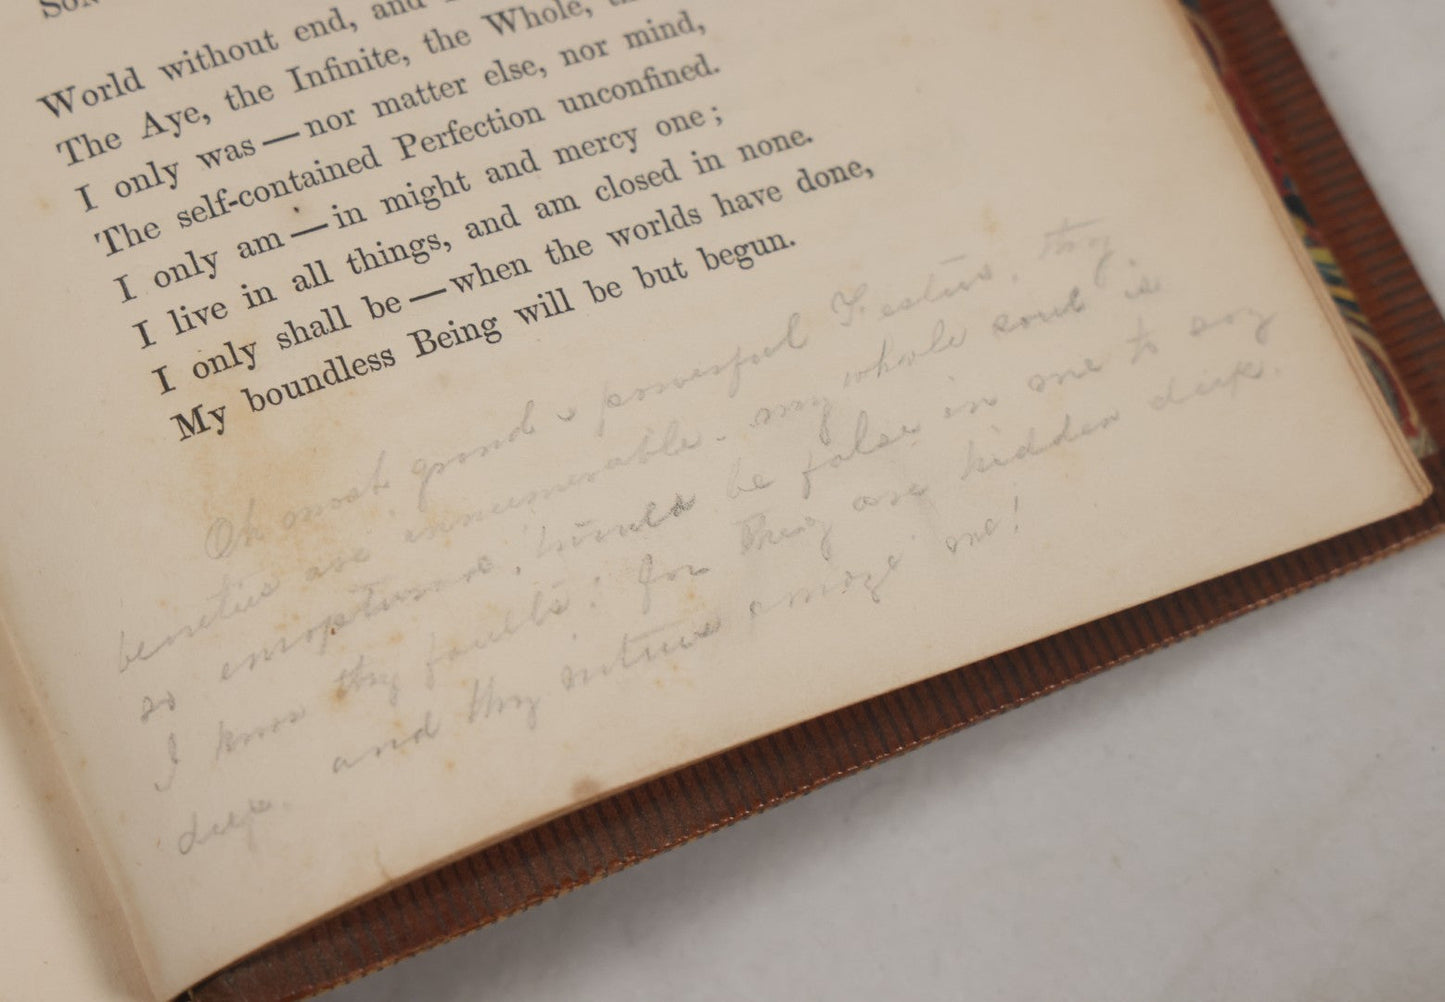 World without end, and
The Aye, the Infinite, the Whole,
I only was—nor matter else, nor mind,
The self-contained Perfection unconfined.
I only am—in might and mercy one;
I live in all things, and am closed in none.
I only shall be—when the worlds have done,
My boundless Being will be but begun.
Oh most grand & powerful Festus, thy
beauties are innumerable. my whole soul is
so enraptured, would be false in me to say
I know thy faults! for they are hidden deep.
deep. and thy virtues amaze me!